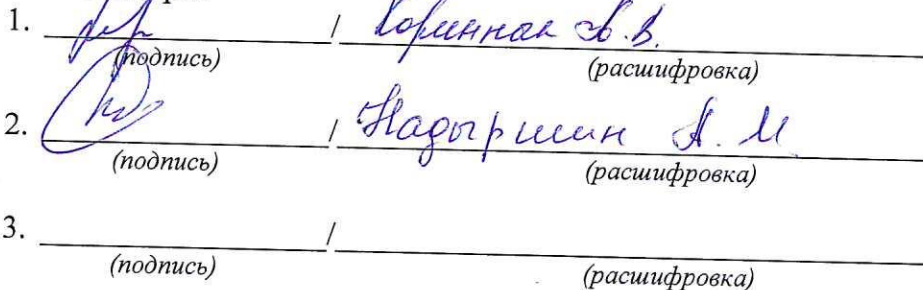 1. / А.В.
(подпись) (расшифровка)
2. / Надыршин А. М
(подпись) (расшифровка)
3. /
(подпись) (расшифровка)